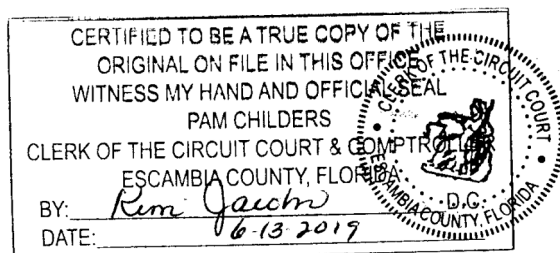 CERTIFIED TO BE A TRUE COPY OF THE
ORIGINAL ON FILE IN THIS OFFICE
WITNESS MY HAND AND OFFICIAL SEAL
PAM CHILDERS
CLERK OF THE CIRCUIT COURT & COMPTROLLER
ESCAMBIA COUNTY, FLORIDA
BY: D.C.
DATE: 6-13-2019
CLERK OF THE CIRCUIT COURT
ESCAMBIA COUNTY, FLORIDA